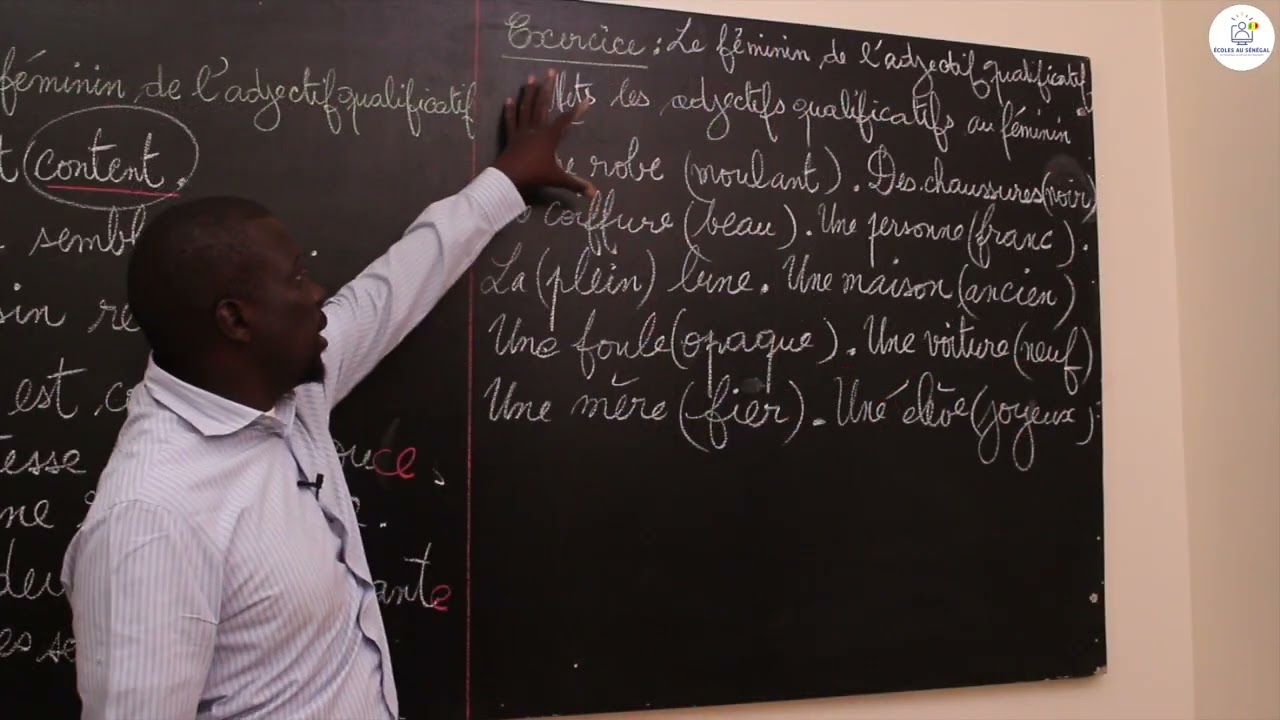 féminin de l'adjectif qualificatif
content.
sembl
sin re
est co
ouce,
tesse
ne
deu
ante
es se
Exercice : Le féminin de l'adjectif qualificatif.
Mets les adjectifs qualificatifs au féminin
robe (moulant). Des chaussures (noir)
coiffure (beau). Une personne (franc).
La (plein) lune. Une maison (ancien)
Une foule (opaque). Une voiture (neuf)
Une mère (fier). Une élève (joyeux).
ÉCOLES AU SÉNÉGAL